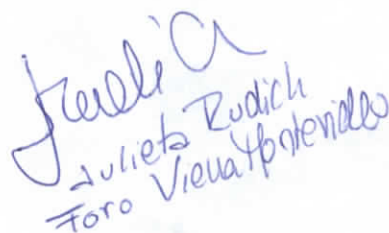 Julieta Rudich
Foro Viena Montevideo